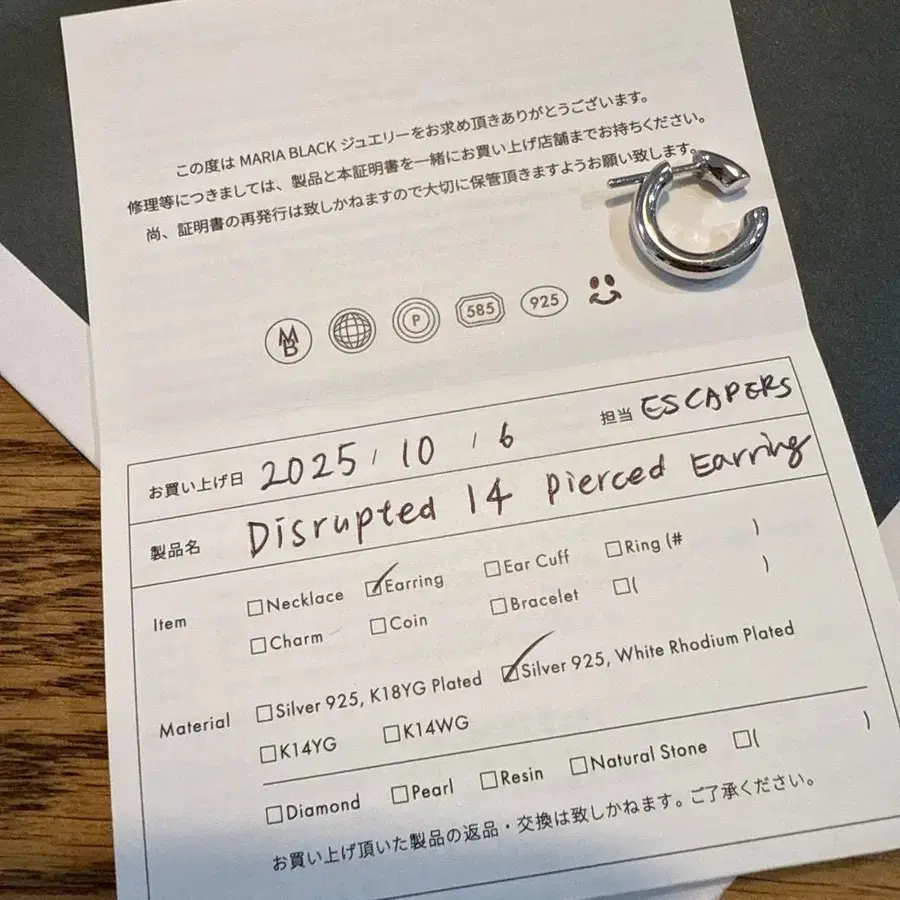 この度は MARIA BLACK ジュエリーをお求め頂きありがとうございます。
修理等につきましては、製品と本証明書を一緒にお買い上げ店舗までお持ちください。
尚、証明書の再発行は致しかねますので大切に保管頂きますようお願い致します。
MB P 585 925
お買い上げ日 2025 / 10 / 6 担当 ESCAPERS
製品名 Disrupted 14 pierced Earring
Item □Necklace ☑Earring □Ear Cuff □Ring (# )
□Charm □Coin □Bracelet □( )
Material □Silver 925, K18YG Plated ☑Silver 925, White Rhodium Plated
□K14YG □K14WG
□Diamond □Pearl □Resin □Natural Stone □( )
お買い上げ頂いた製品の返品・交換は致しかねます。ご了承ください。